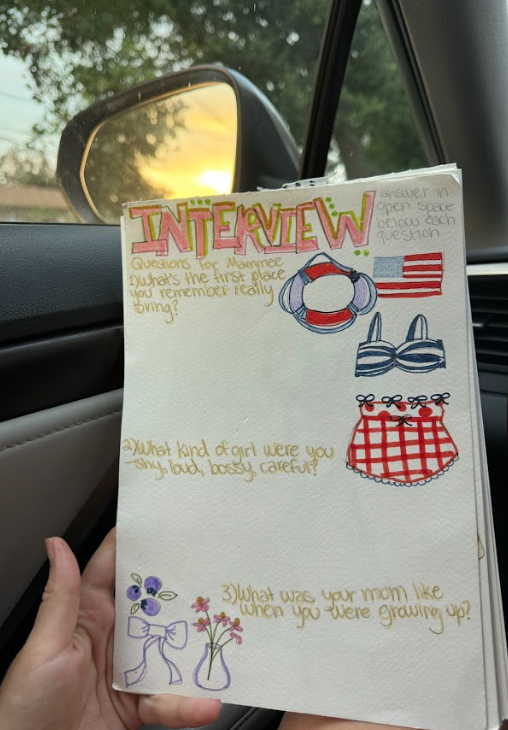 INTERVIEW
answer in
open space
below each
question
Questions for Mammee
1) What's the first place
you remember really
loving?
2) What kind of girl were you
-shy, loud, bossy, careful?
3) What was your mom like
when you were growing up?